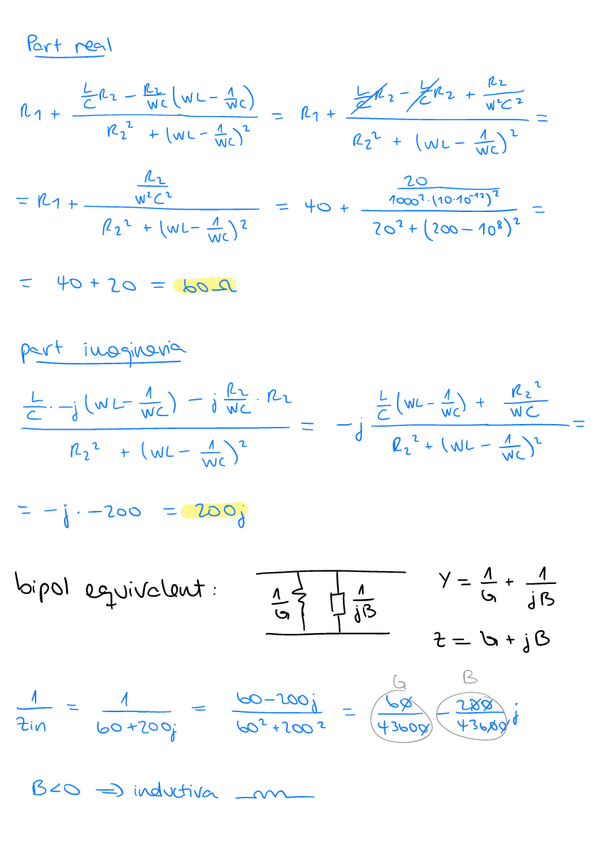 Part real
R1 + (L/C R2 − R2/WC (WL − 1/WC)) / (R2² + (WL − 1/WC)²) = R1 + (L/C R2 − L/C R2 + R2/W²C²) / (R2² + (WL − 1/WC)²) =
= R1 + (R2/W²C²) / (R2² + (WL − 1/WC)²) = 40 + (20/1000²·(10·10⁻¹²)²) / (20² + (200 − 10⁸)²) =
= 40 + 20 = 60Ω
part imaginaria
(L/C · −j(WL − 1/WC) − j R2/WC · R2) / (R2² + (WL − 1/WC)²) = −j (L/C (WL − 1/WC) + R2²/WC) / (R2² + (WL − 1/WC)²) =
= −j · −200 = 200j
bipol equivalent: 1/G 1/jB Y = 1/G + 1/jB
Z = G + jB
G B
1/Zin = 1/(60+200j) = (60−200j)/(60²+200²) = 60/43600 − 200/43600 j
B<0 ⇒ inductiva